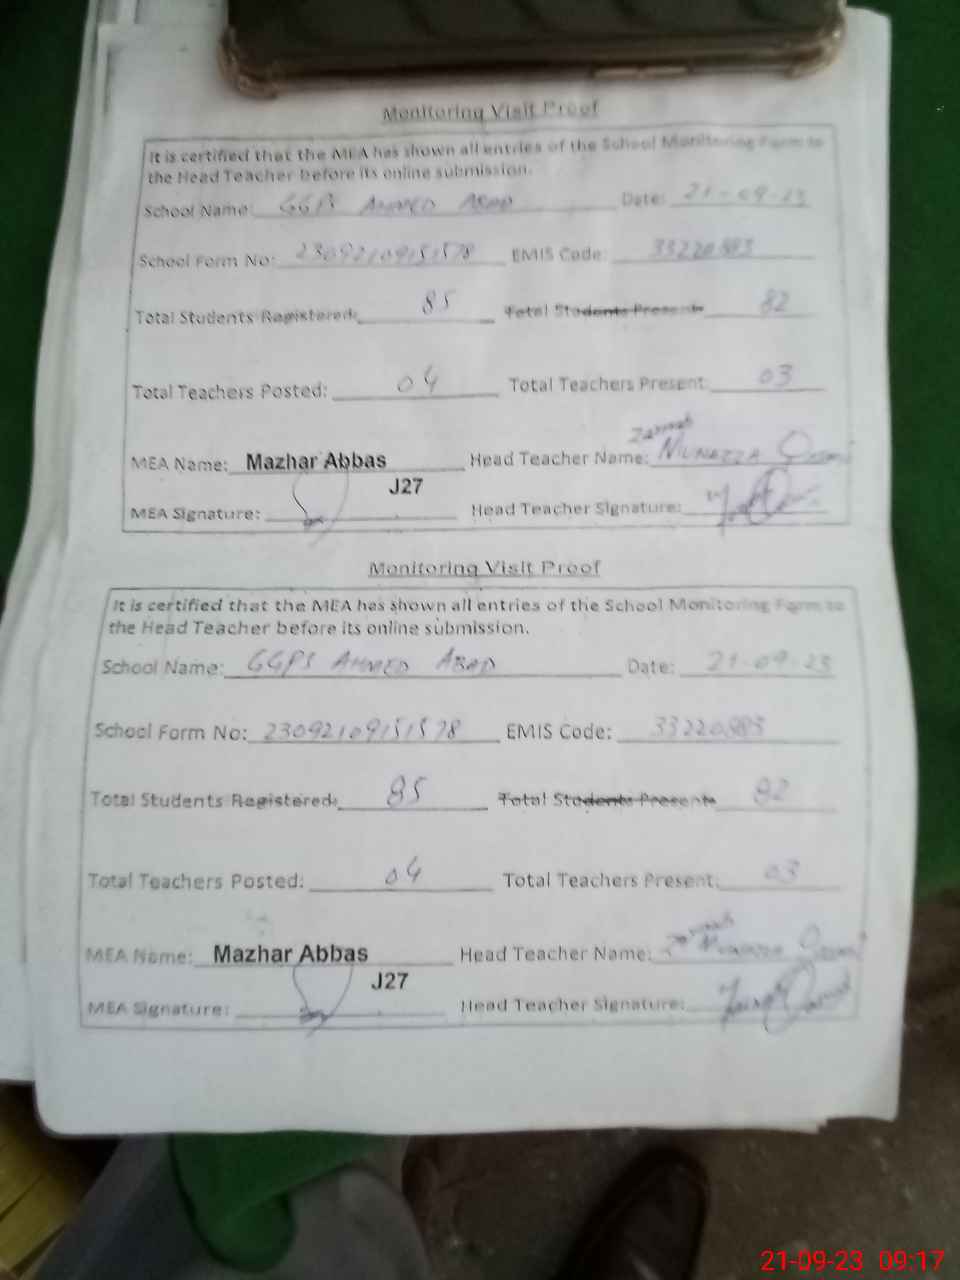 Monitoring Visit Proof
It is certified that the MEA has shown all entries of the School Monitoring Form to
the Head Teacher before its online submission.
School Name: GGPS AHMED ABAD Date: 21-09-23
School Form No: 23092109151578 EMIS Code: 33220883
Total Students Registered: 85 Total Students Present: 82
Total Teachers Posted: 04 Total Teachers Present: 03
Zarnab
MEA Name: Mazhar Abbas Head Teacher Name: Munazza
J27
MEA Signature: Head Teacher Signature:
Monitoring Visit Proof
It is certified that the MEA has shown all entries of the School Monitoring Form to
the Head Teacher before its online submission.
School Name: GGPS AHMED ABAD Date: 21-09-23
School Form No: 23092109151578 EMIS Code: 33220883
Total Students Registered: 85 Total Students Present: 82
Total Teachers Posted: 04 Total Teachers Present: 03
MEA Name: Mazhar Abbas Head Teacher Name: Munazza
J27
MEA Signature: Head Teacher Signature:
21-09-23 09:17